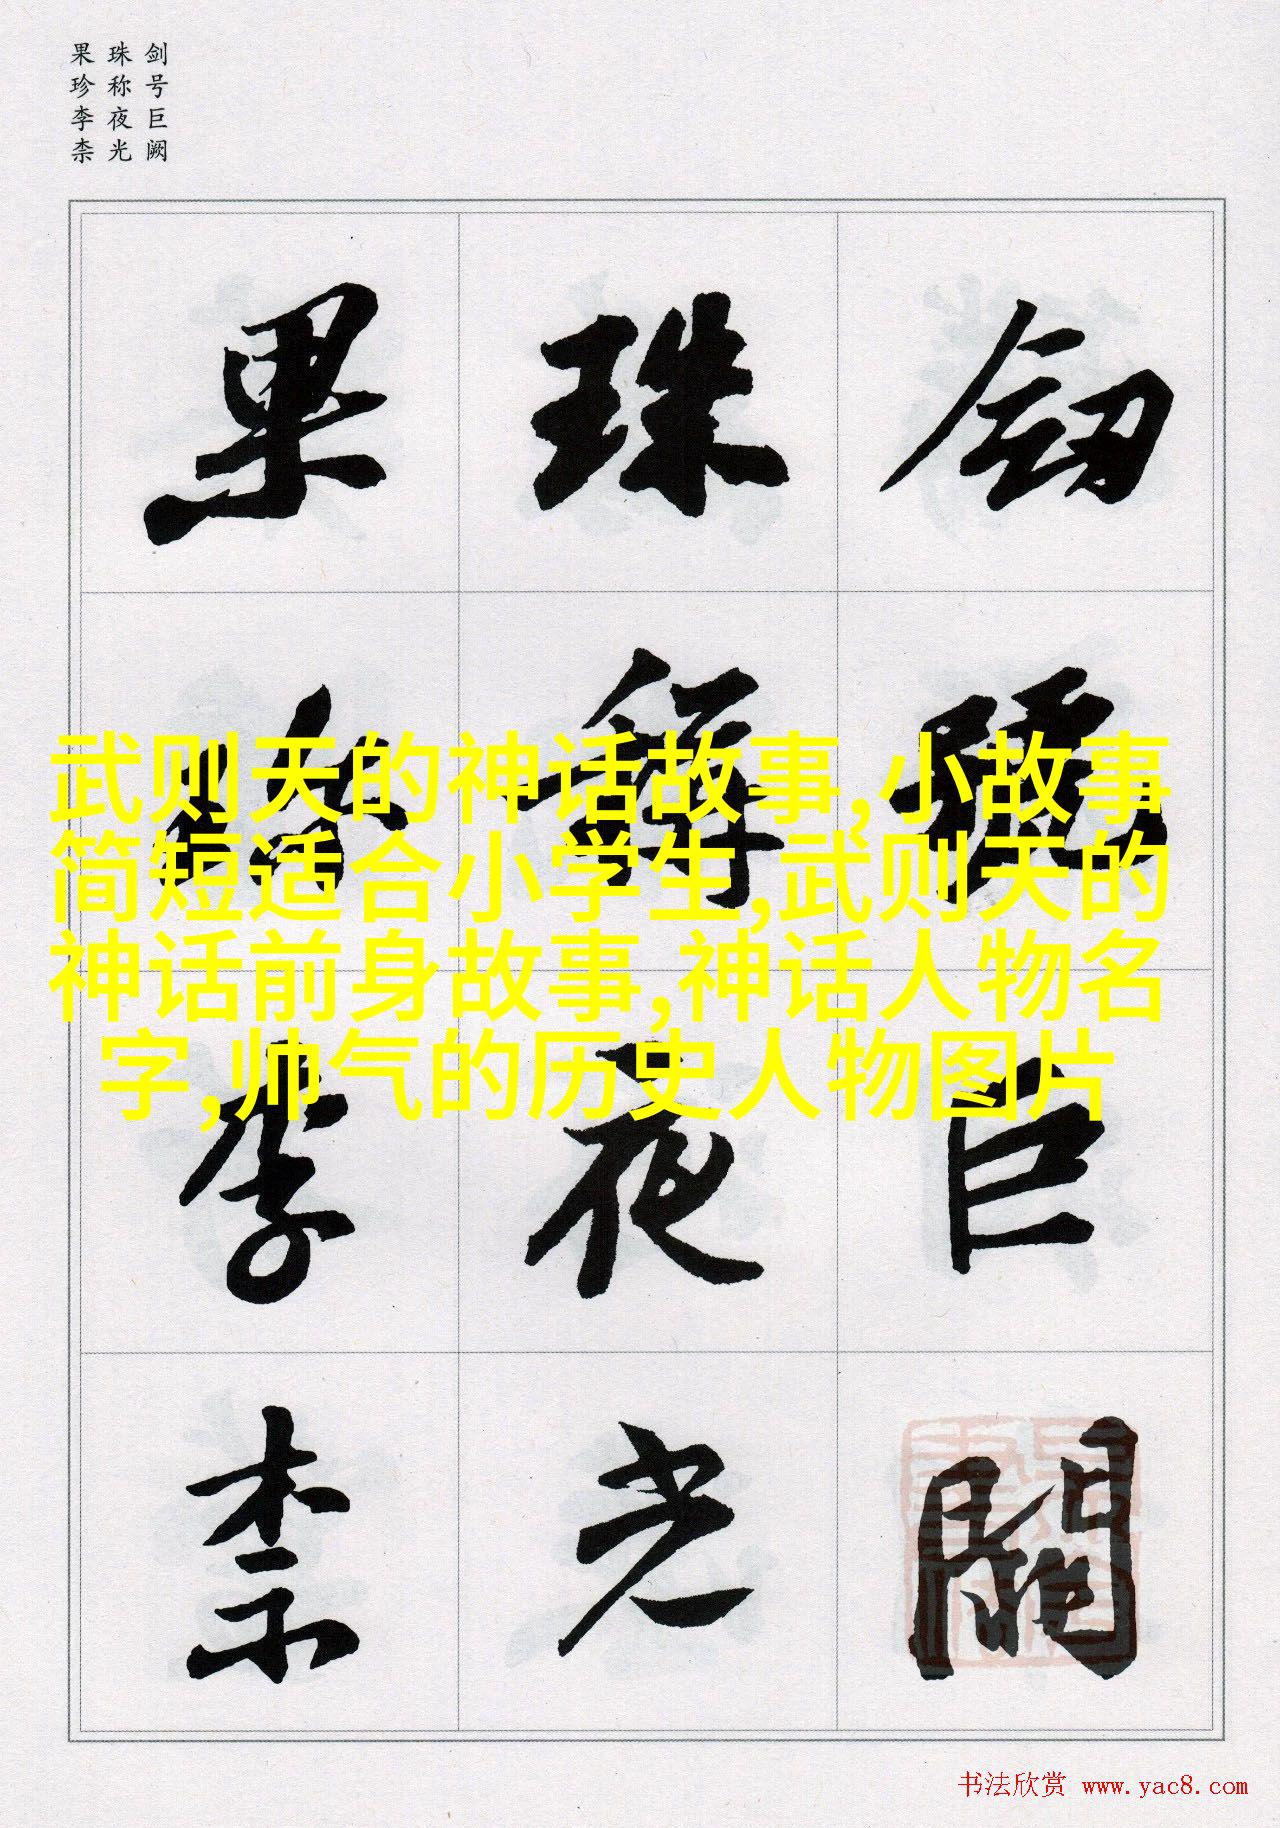 剑号巨阙
珠称夜光
果珍李柰
劍號巨闕
珠稱夜光
果珍李柰
武则天的神话故事,小故事
简短适合小学生,武则天的
神话前身故事,神话人物名
字,帅气的历史人物图片
书法欣赏 www.yac8.com